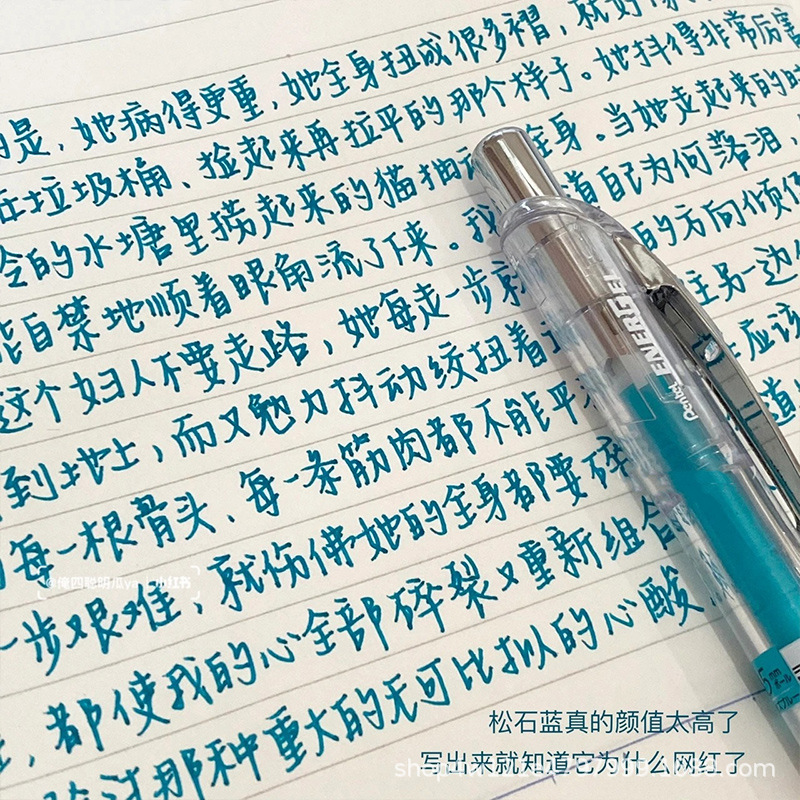 是，她病得更重，她全身扭成很多褶，就好像
垃圾桶、捡起来再拉平的那个样子。她抖得非常厉害
的水塘里捞起来的猫抽动全身。当她走起来的时
自禁地顺着眼角流了下来。我 道自己为何落泪，
这个妇人不要走路，她每走一步就 的方向倾
到地上，而又勉力抖动绞扭着 主另一边
每一根骨头、每一条筋肉都不能平 应该
一步艰难，就仿佛她的全身都要碎 道
都使我的心全部碎裂又重新组合
那种重大的无可比拟的心酸
Pentel ENERGEL
5mm
ボール
@俺四聪明瓜ya
小红书
松石蓝真的颜值太高了
写出来就知道它为什么网红了